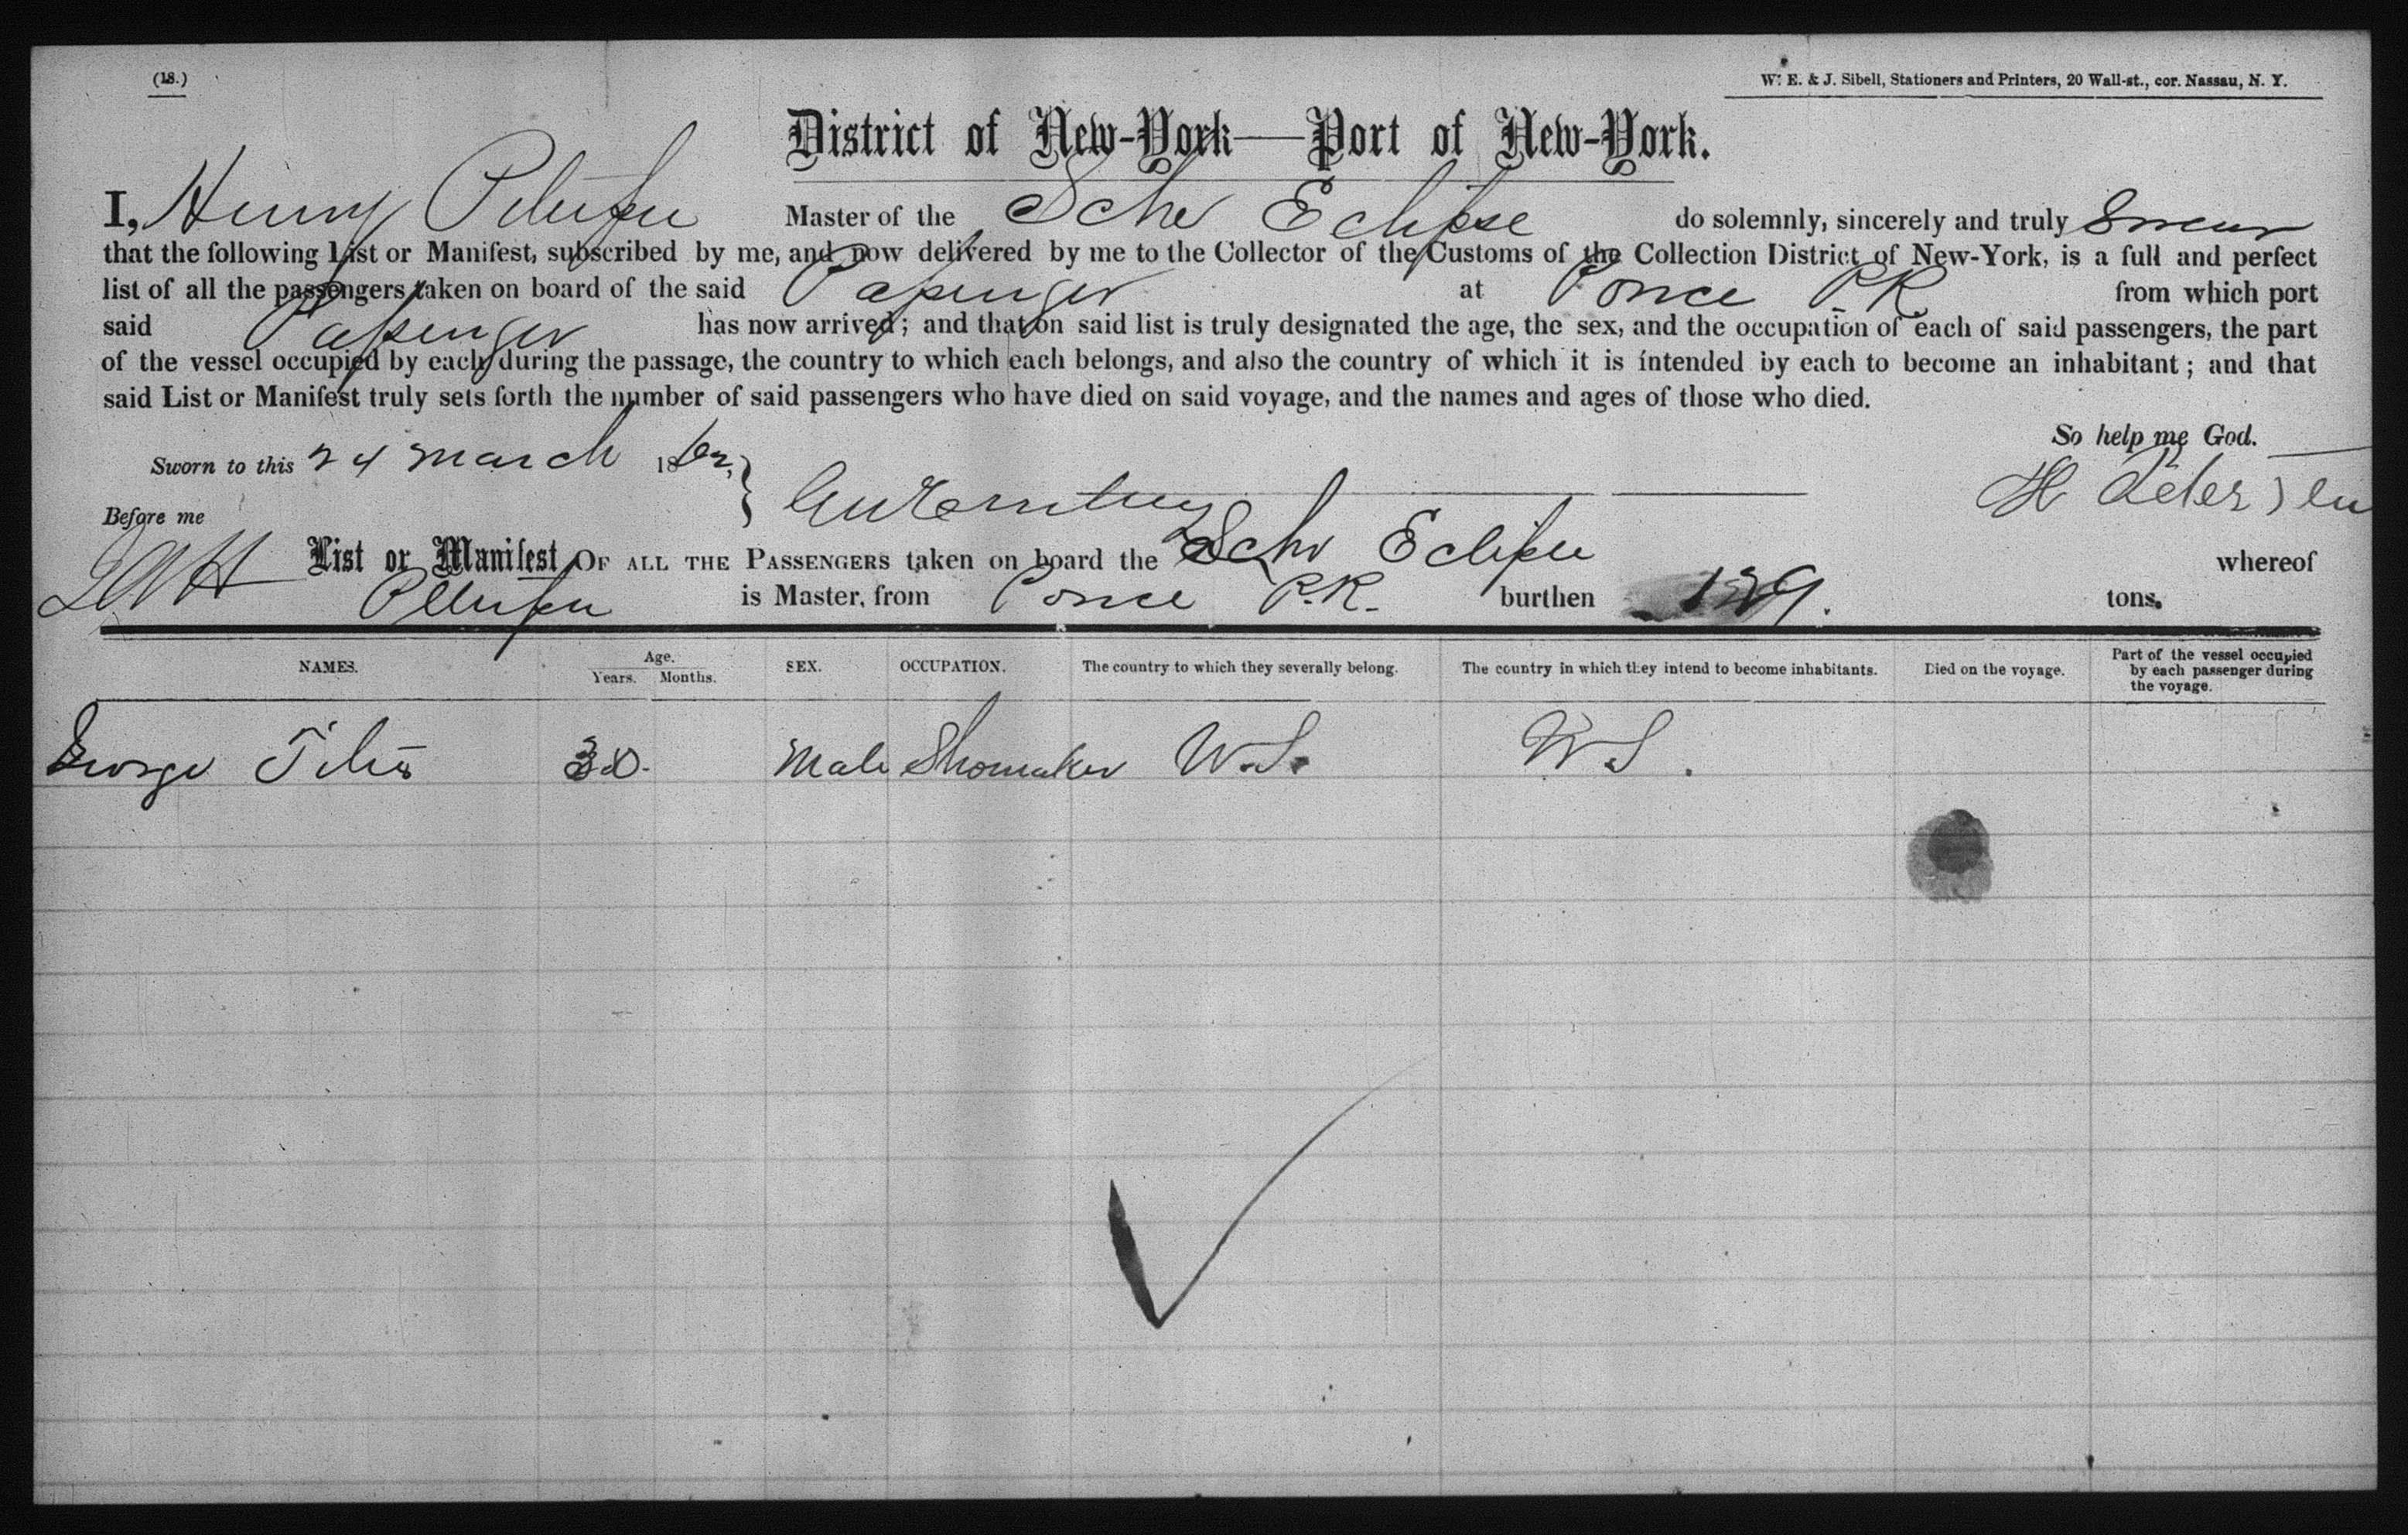 (18.)
W. E. & J. Sibell, Stationers and Printers, 20 Wall-st., cor. Nassau, N. Y.
District of New-York—Port of New-York.
I, Henry Petersen Master of the Schr Eclipse do solemnly, sincerely and truly Swear
that the following List or Manifest, subscribed by me, and now delivered by me to the Collector of the Customs of the Collection District of New-York, is a full and perfect
list of all the passengers taken on board of the said Passenger at Ponce P.R. from which port
said Passenger has now arrived; and that on said list is truly designated the age, the sex, and the occupation of each of said passengers, the part
of the vessel occupied by each during the passage, the country to which each belongs, and also the country of which it is intended by each to become an inhabitant; and that
said List or Manifest truly sets forth the number of said passengers who have died on said voyage, and the names and ages of those who died.
So help me God.
Sworn to this 24 March 1862, }
H Petersen
Before me
List or Manifest OF ALL THE PASSENGERS taken on board the Schr Eclipse whereof
Petersen is Master, from Ponce P.R. burthen 129. tons.
NAMES. Age. Years. Months. SEX. OCCUPATION. The country to which they severally belong. The country in which they intend to become inhabitants. Died on the voyage. Part of the vessel occupied by each passenger during the voyage.
George 30. Male Shomaker